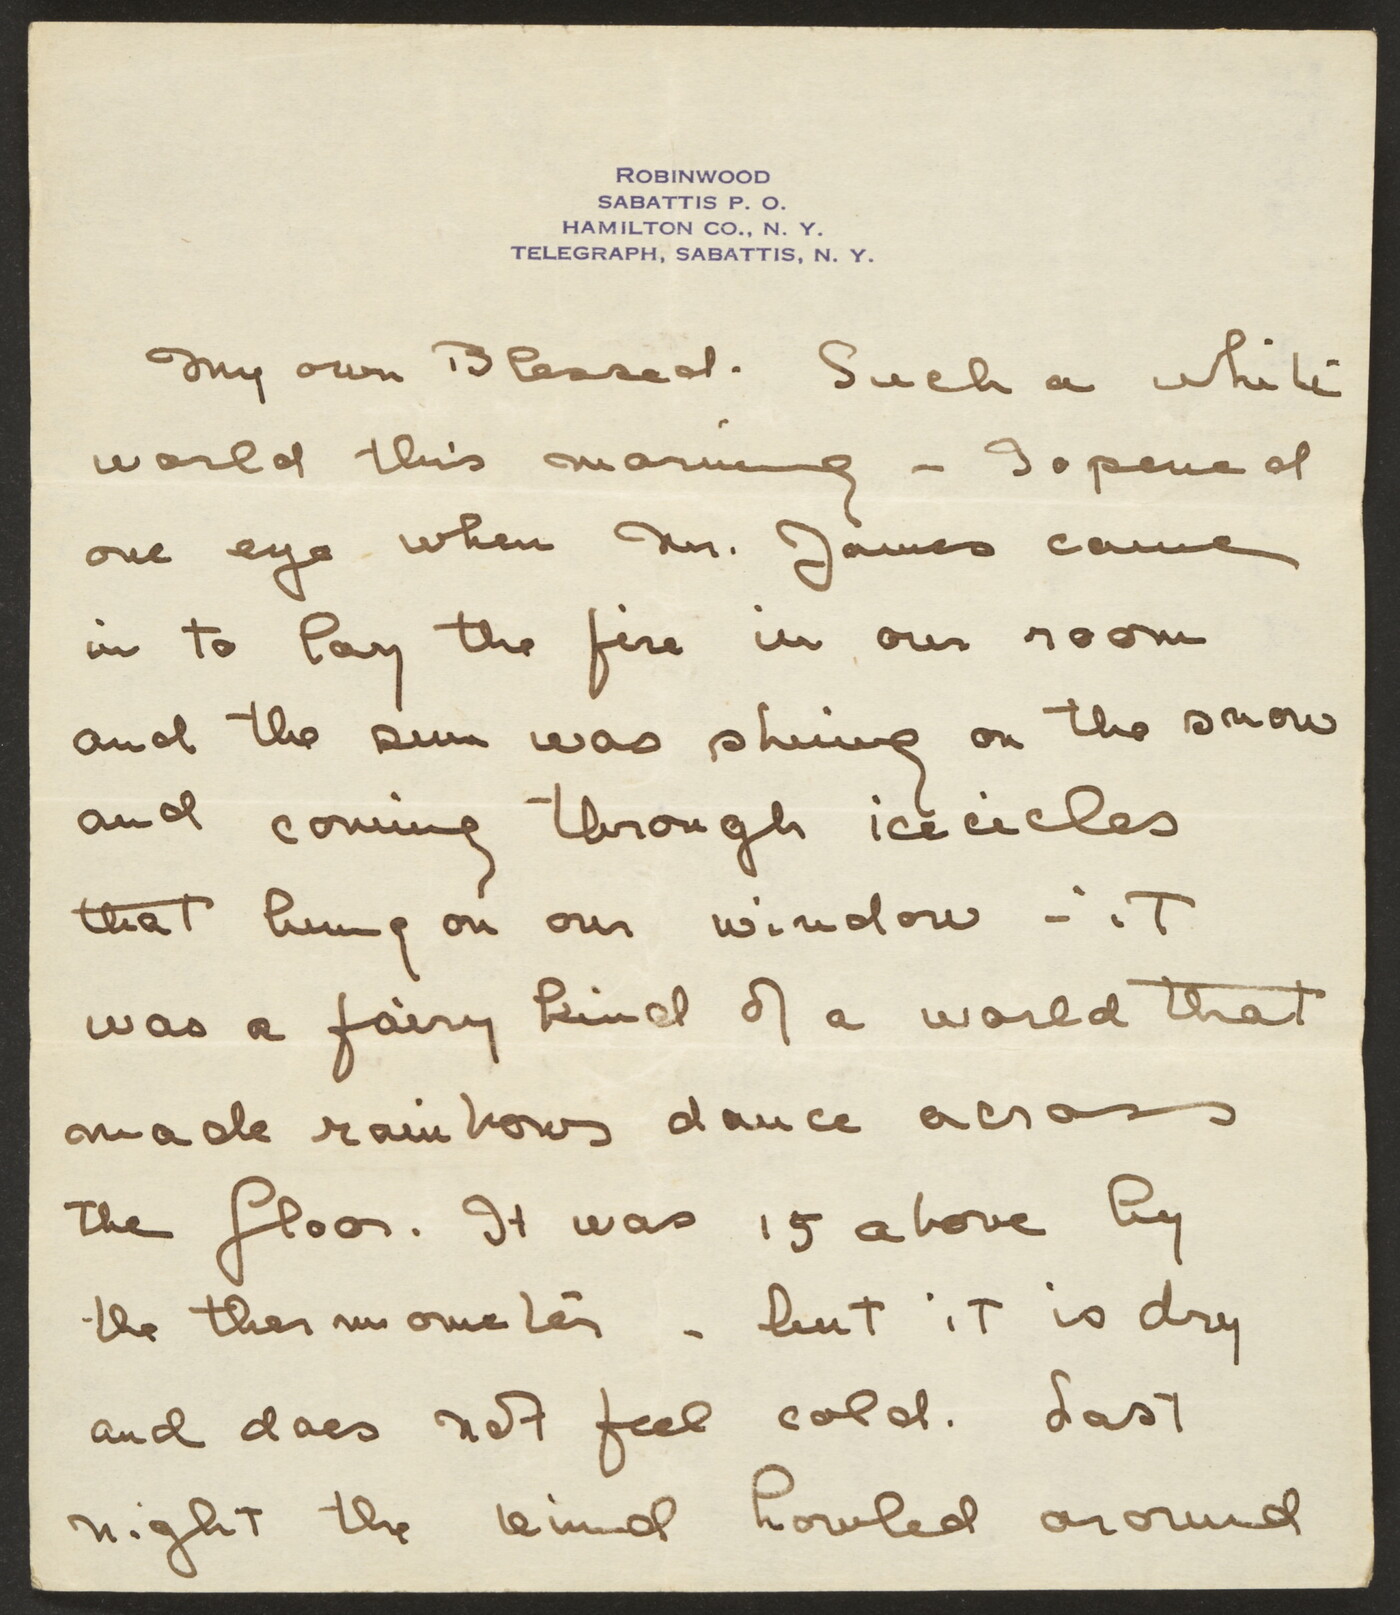 ROBINWOOD
SABATTIS P. O.
HAMILTON CO., N. Y.
TELEGRAPH, SABATTIS, N. Y.
My own Blessed. Such a white
world this morning - I opened
one eye when Mr. James came
in to lay the fire in our room
and the sun was shining on the snow
and coming through icecicles
that hung on our window - it
was a fairy kind of a world that
made rainbows dance across
the floor. It was 15 above by
the thermometer - but it is dry
and does not feel cold. Last
night the wind howled around